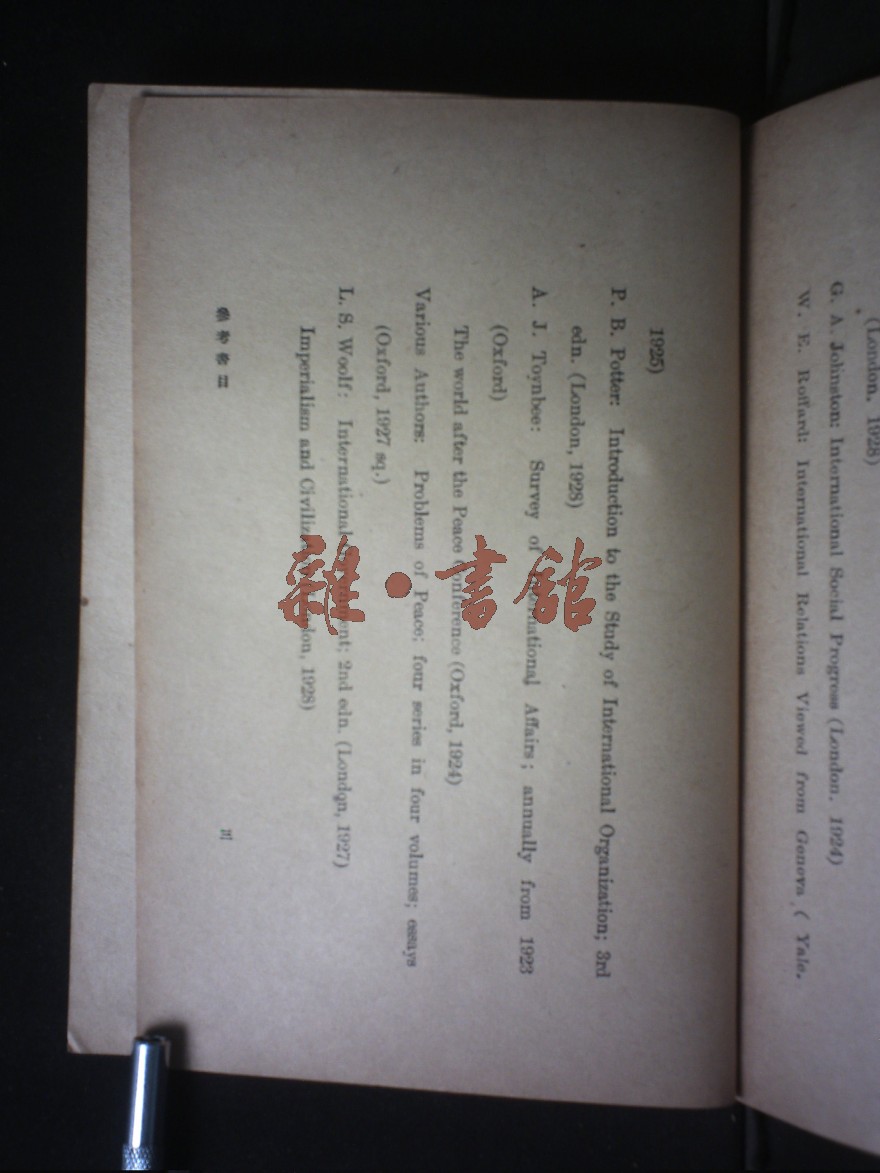 (London, 1928)
G. A. Johnston: International Social Progress (London, 1924)
W. E. Roffard: International Relations Viewed from Geneva ( Yale,
1925)
P. B. Potter: Introduction to the Study of International Organization; 3rd
edn. (London, 1928)
A. J. Toynbee: Survey of International Affairs; annually from 1923
(Oxford)
The world after the Peace Conference (Oxford, 1924)
Various Authors: Problems of Peace; four series in four volumes; essays
(Oxford, 1927 sq.)
L. S. Woolf: International Government; 2nd edn. (London, 1927)
Imperialism and Civilization (London, 1928)